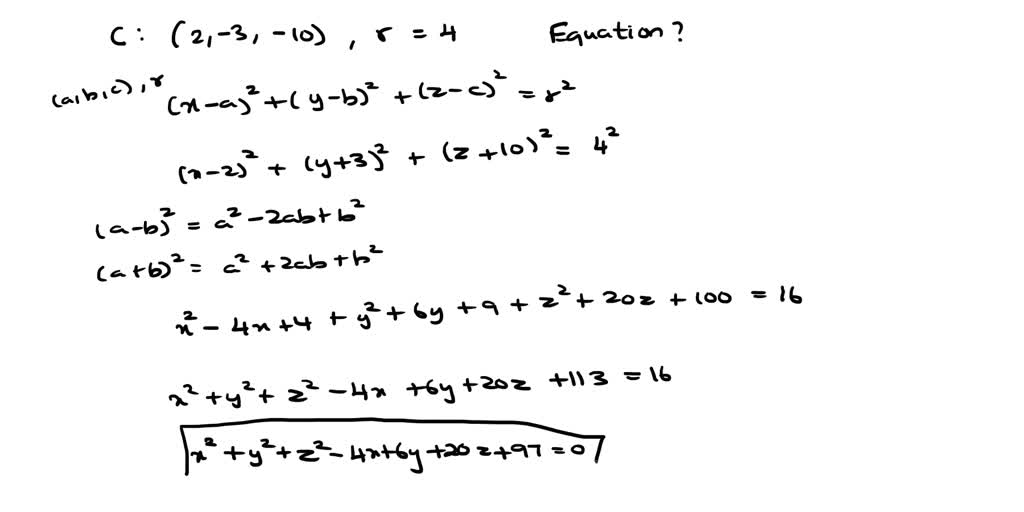 C: (2,-3,-10), r = 4 Equation?
(a,b,c),r (x-a)²+(y-b)²+(z-c)²=r²
(x-2)²+(y+3)²+(z+10)²=4²
(a-b)²=a²-2ab+b²
(a+b)²=a²+2ab+b²
x²-4x+4+y²+6y+9+z²+20z+100=16
x²+y²+z²-4x+6y+20z+113=16
x²+y²+z²-4x+6y+20z+97=0